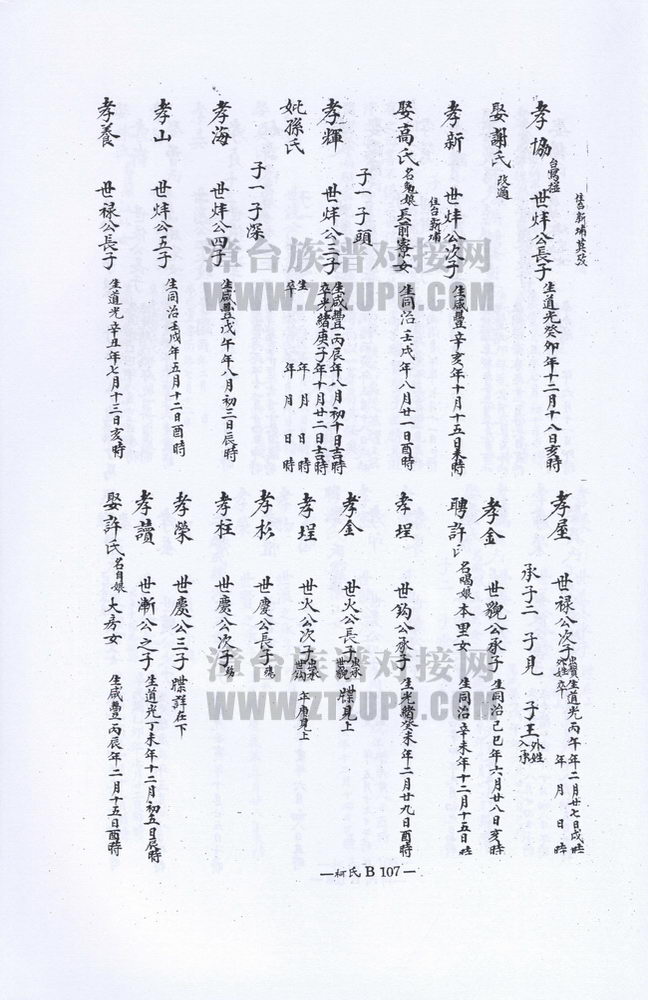 住台新埔其改
孝協 台寓楹 世烊公長子 生道光癸卯年十二月十八日亥時
娶謝氏 改適
孝新 住台新埔 世烊公次子 生咸豐辛亥年十月十五日未時
娶高氏 名勇娘 長前寮女 生同治壬戌年八月廿一日酉時
子一 子頭
孝輝 世烊公三子 生咸豐丙辰年八月初十日吉時 卒光緒庚子年十月廿二日吉時
妣孫氏 生 年 月 日 時 卒 年 月 日 時
子一 子深
孝海 世烊公四子 生咸豐戊午年八月初三日辰時
孝山 世烊公五子 生同治壬戌年五月十二日酉時
孝養 世祿公長子 生道光辛丑年七月十三日亥時
孝屋 世祿公次子 出贅外姓 生道光丙午年二月廿七日戌時 卒 年 月 日 時
承子二 子見 子王 外姓入承
孝金 世觀公承子 生同治己巳年六月廿八日亥時
聘許氏 名喝娘 本里女 生同治辛未年十二月十五日時
孝埕 世鈎公承子 生光緒癸未年二月廿九日酉時
孝金 世火公長子 出承世觀 牒見上
孝埕 世火公次子 出承世鈎 年庚見上
孝杉 世慶公長子 殤
孝柱 世慶公次子 殤
孝榮 世慶公三子 牒詳在下
孝讚 世漸公之子 生道光丁未年十二月初五日辰時
娶許氏 名自娘 大房女 生咸豐丙辰年二月十五日酉時
—柯氏 B 107—
漳台族谱对接网
WWW.ZTZUPU.COM
漳台族谱对接网
WWW.ZTZUPU.COM